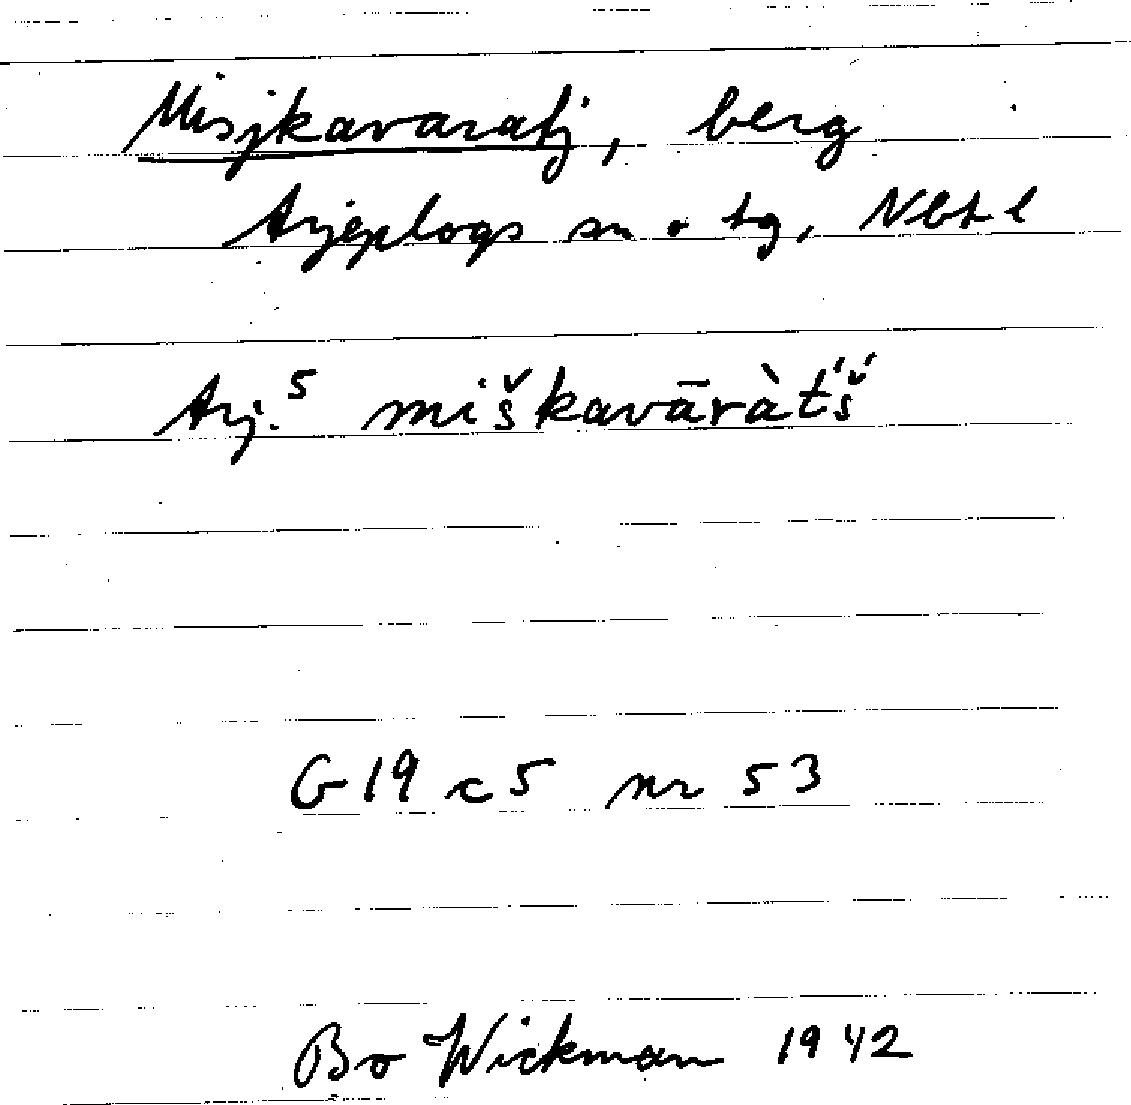 Misjkavaratj, berg
Arjeplogs sn o tg, Nbt l
Arj.⁵ miškavāràt́š́
G 19 c 5 nr 53
Bo Wickman 1942